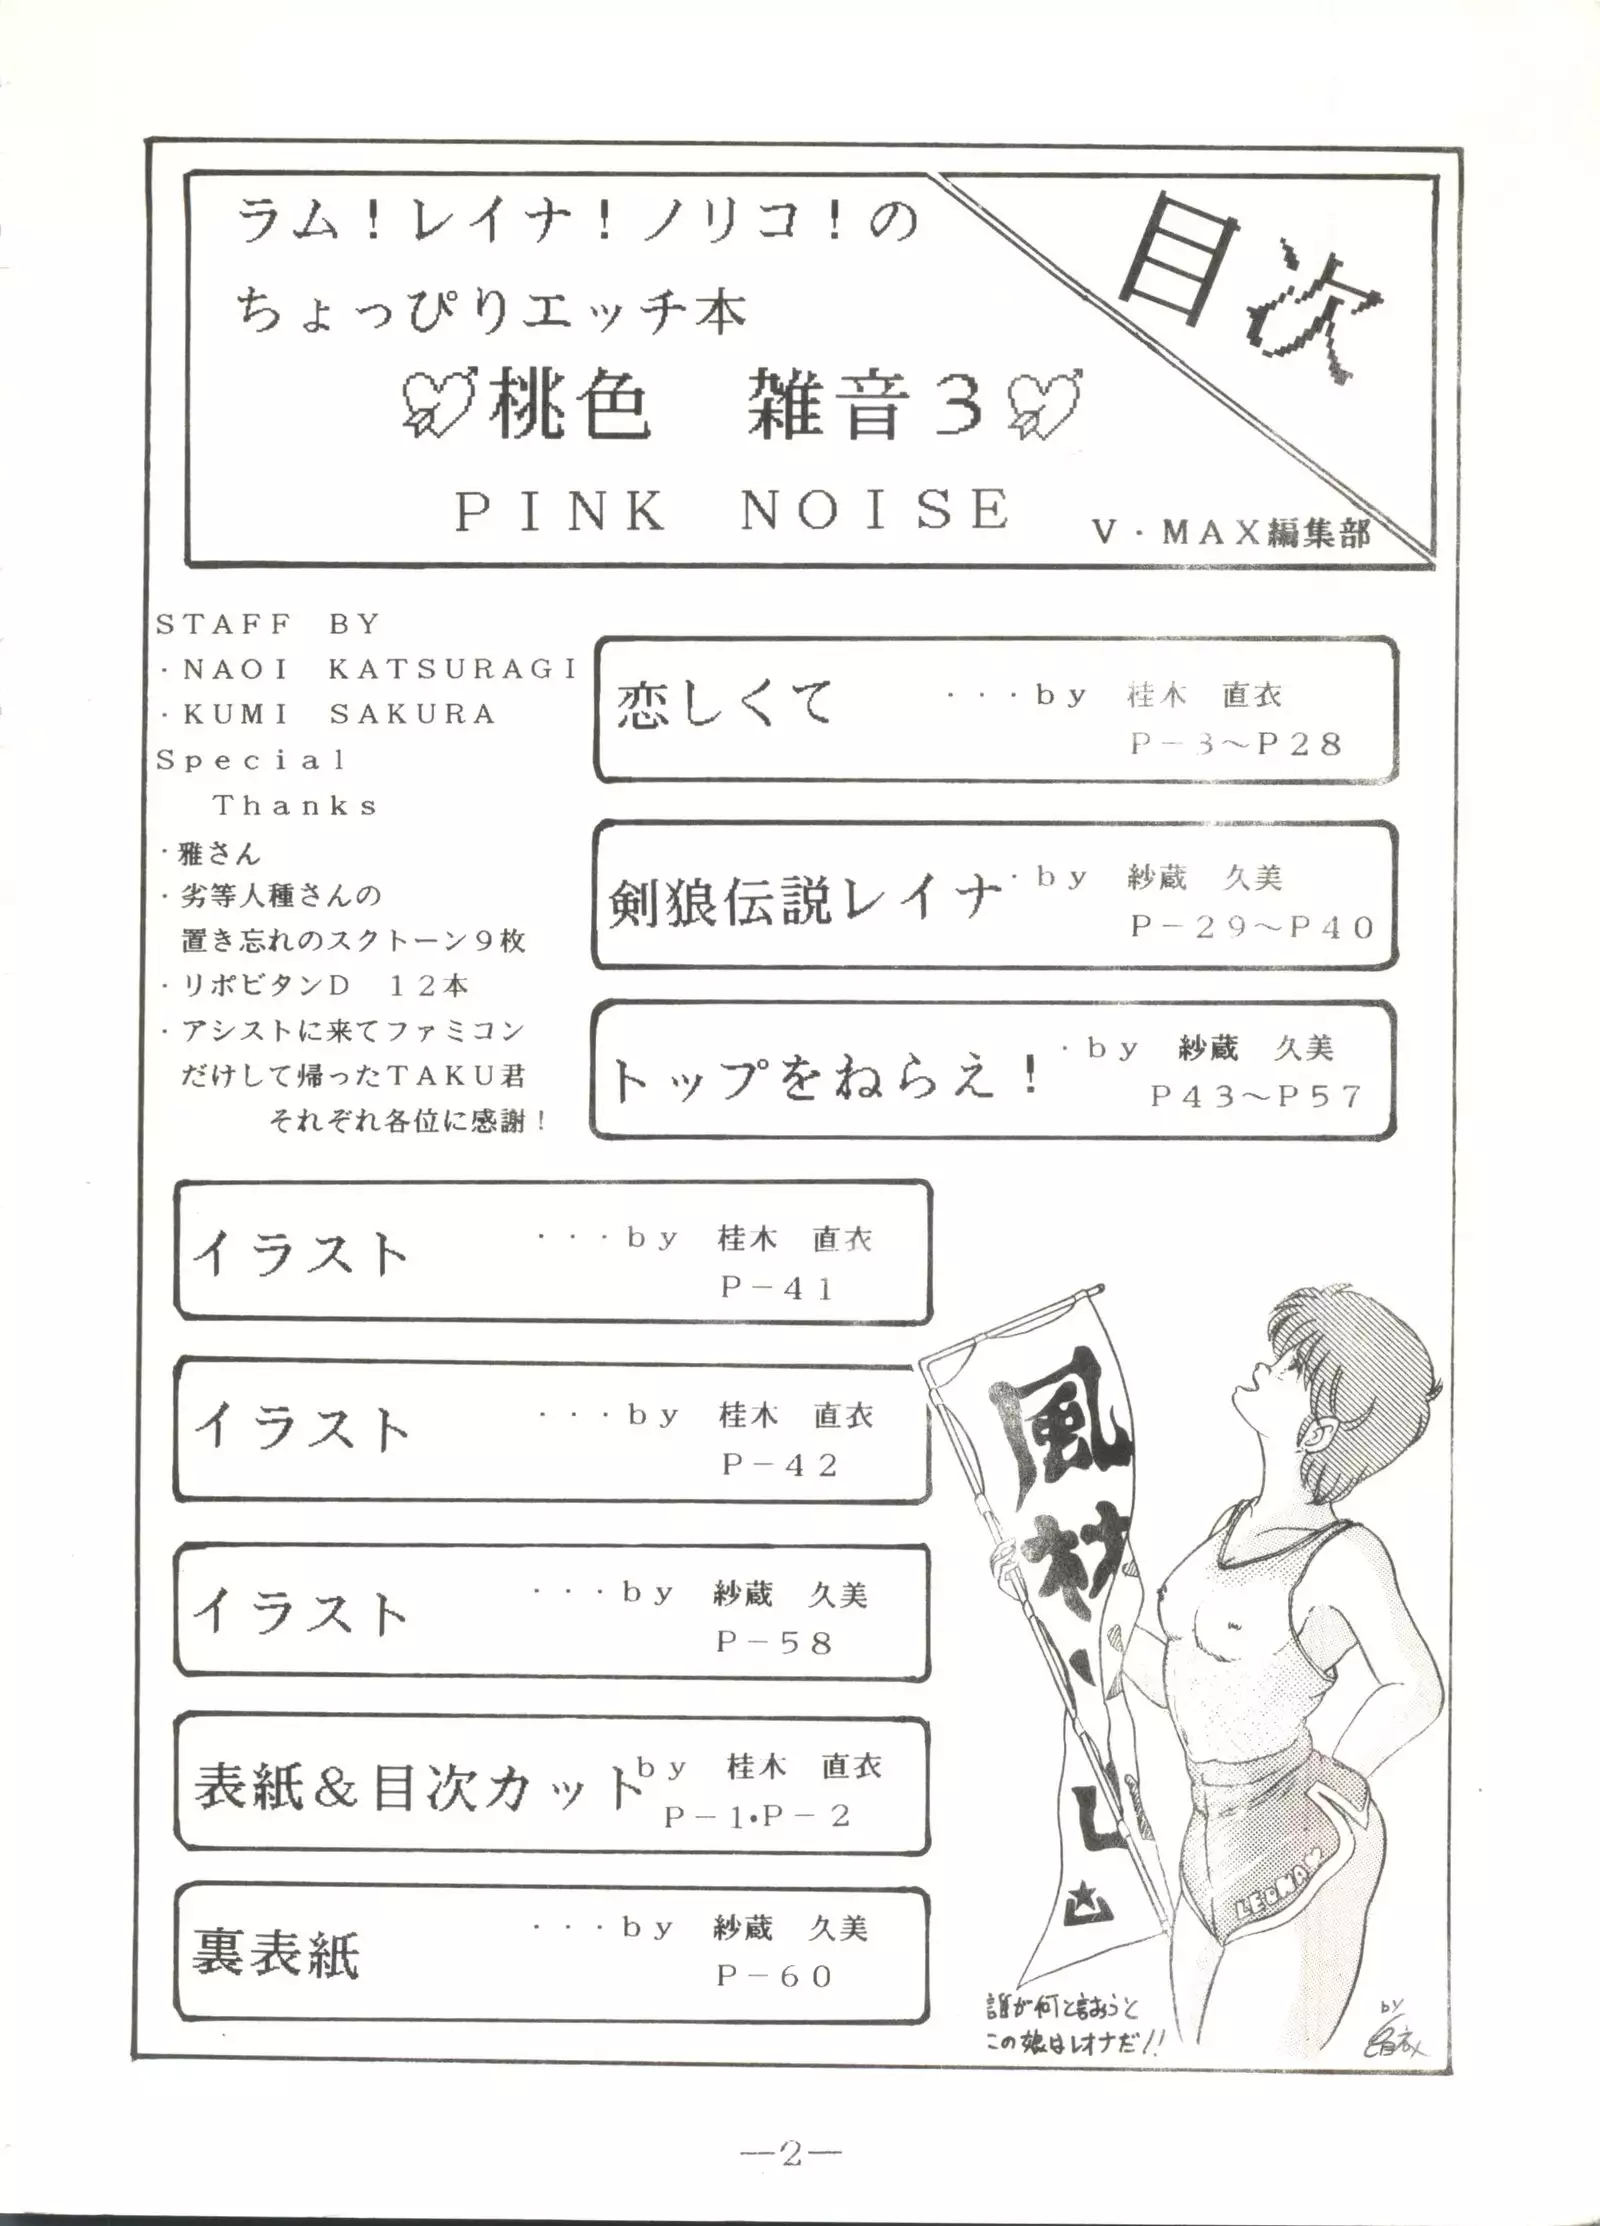 目次
ラム！レイナ！ノリコ！の
ちょっぴりエッチ本
桃色　雑音３
ＰＩＮＫ　ＮＯＩＳＥ
Ｖ・ＭＡＸ編集部
ＳＴＡＦＦ　ＢＹ
・ＮＡＯＩ　ＫＡＴＳＵＲＡＧＩ
・ＫＵＭＩ　ＳＡＫＵＲＡ
Ｓｐｅｃｉａｌ
Ｔｈａｎｋｓ
・雅さん
・劣等人種さんの
置き忘れのスクトーン９枚
・リポビタンＤ　１２本
・アシストに来てファミコン
だけして帰ったＴＡＫＵ君
それぞれ各位に感謝！
恋しくて　・・・ｂｙ　桂木　直衣
Ｐ－３～Ｐ２８
剣狼伝説レイナ・ｂｙ　紗蔵　久美
Ｐ－２９～Ｐ４０
トップをねらえ！・ｂｙ　紗蔵　久美
Ｐ４３～Ｐ５７
イラスト　・・・ｂｙ　桂木　直衣
Ｐ－４１
イラスト　・・・ｂｙ　桂木　直衣
Ｐ－４２
イラスト　・・・ｂｙ　紗蔵　久美
Ｐ－５８
表紙＆目次カットｂｙ　桂木　直衣
Ｐ－１・Ｐ－２
裏表紙　・・・ｂｙ　紗蔵　久美
Ｐ－６０
LEONA♥
誰が何と言おうと
この娘はレオナだ！！
by
直衣
―２―